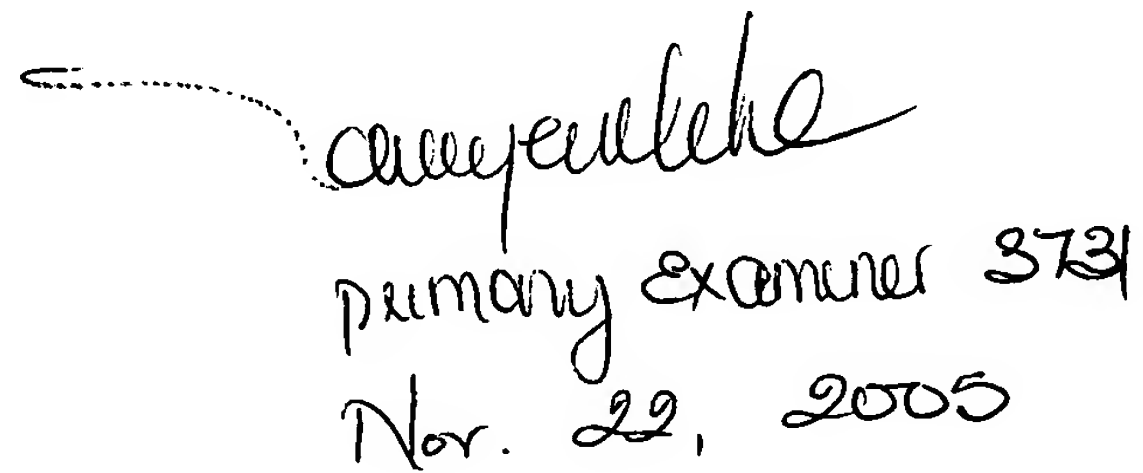 primary Examiner 3731
Nov. 22, 2005